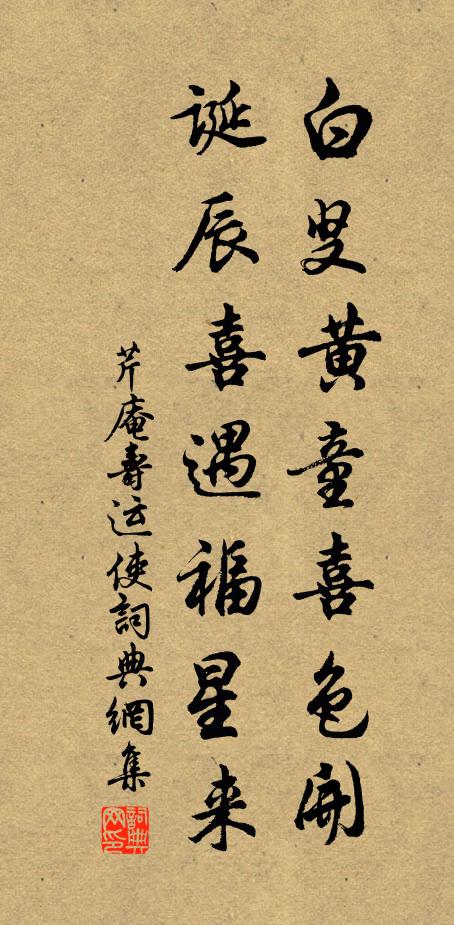 白叟黄童喜色開
誕辰喜遇福星来
芹庵壽运使詞典網集
詞典网印